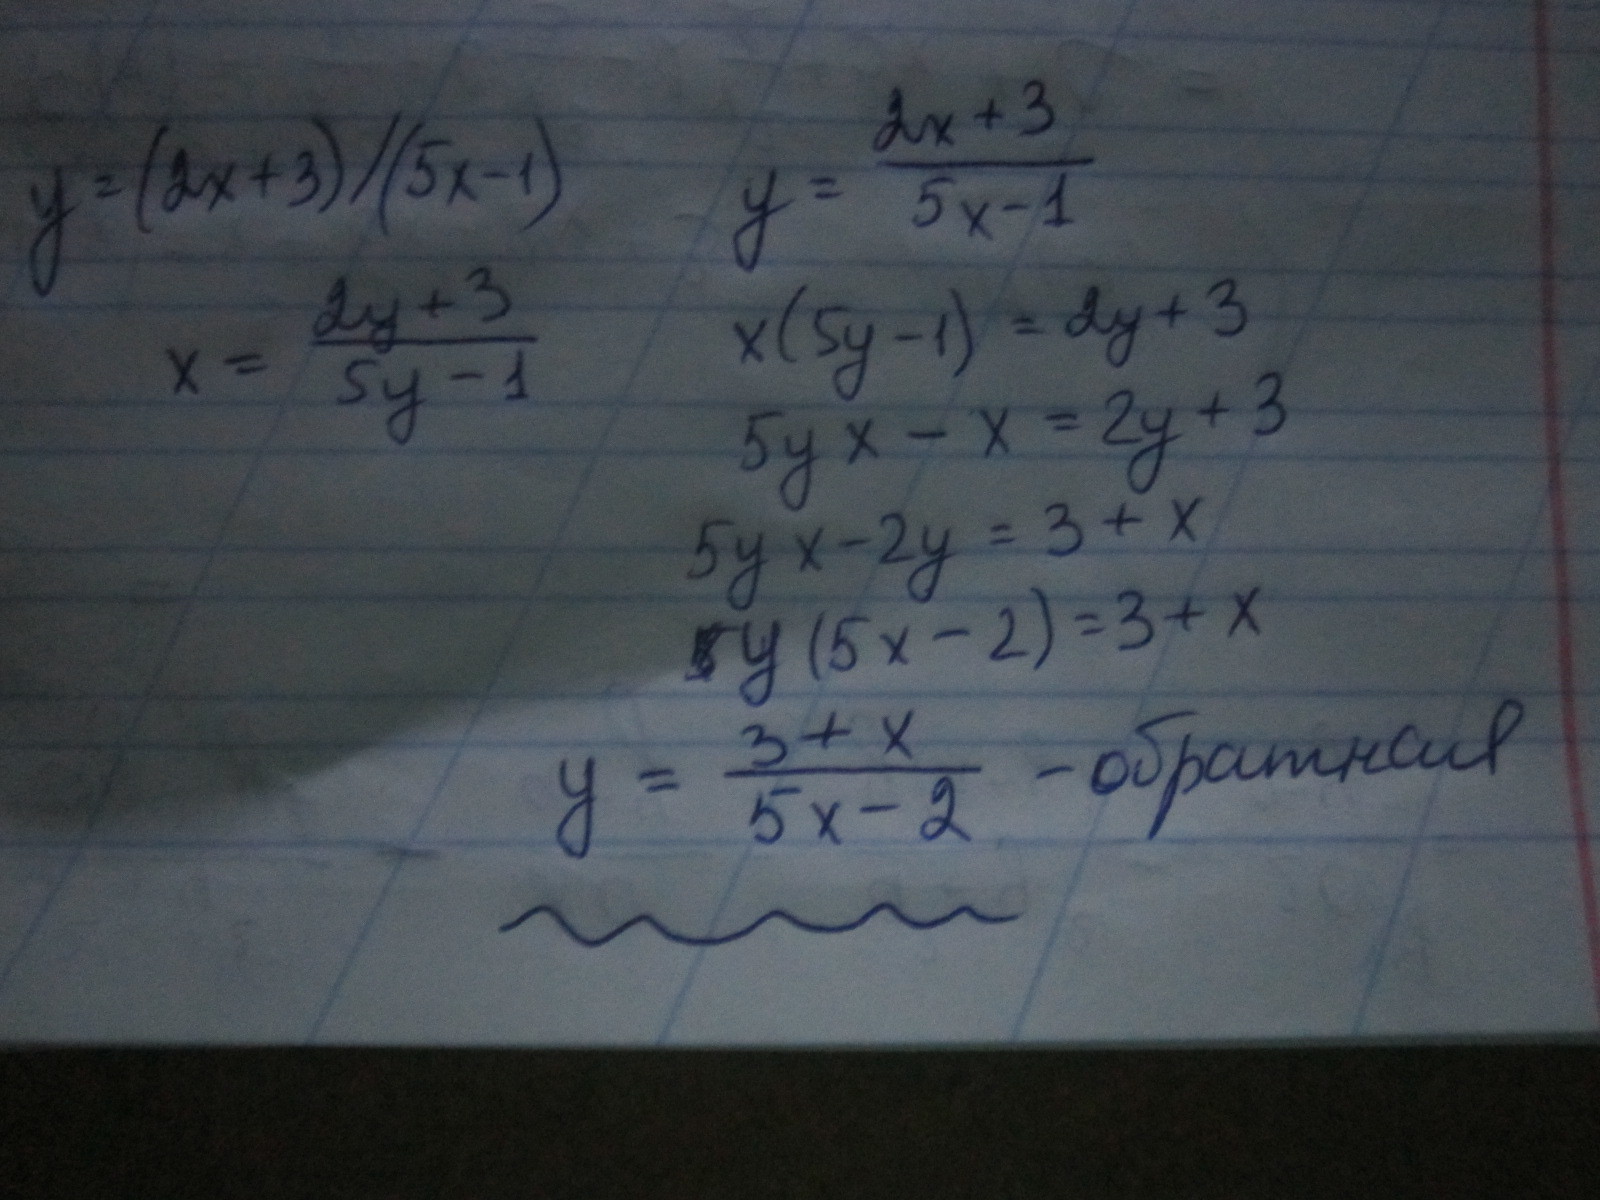 y=(2x+3)/(5x-1)
x = (2y+3)/(5y-1)
y = (2x+3)/(5x-1)
x(5y-1) = 2y+3
5yx - x = 2y+3
5yx-2y = 3+x
y(5x-2)=3+x
y = (3+x)/(5x-2) - обратная